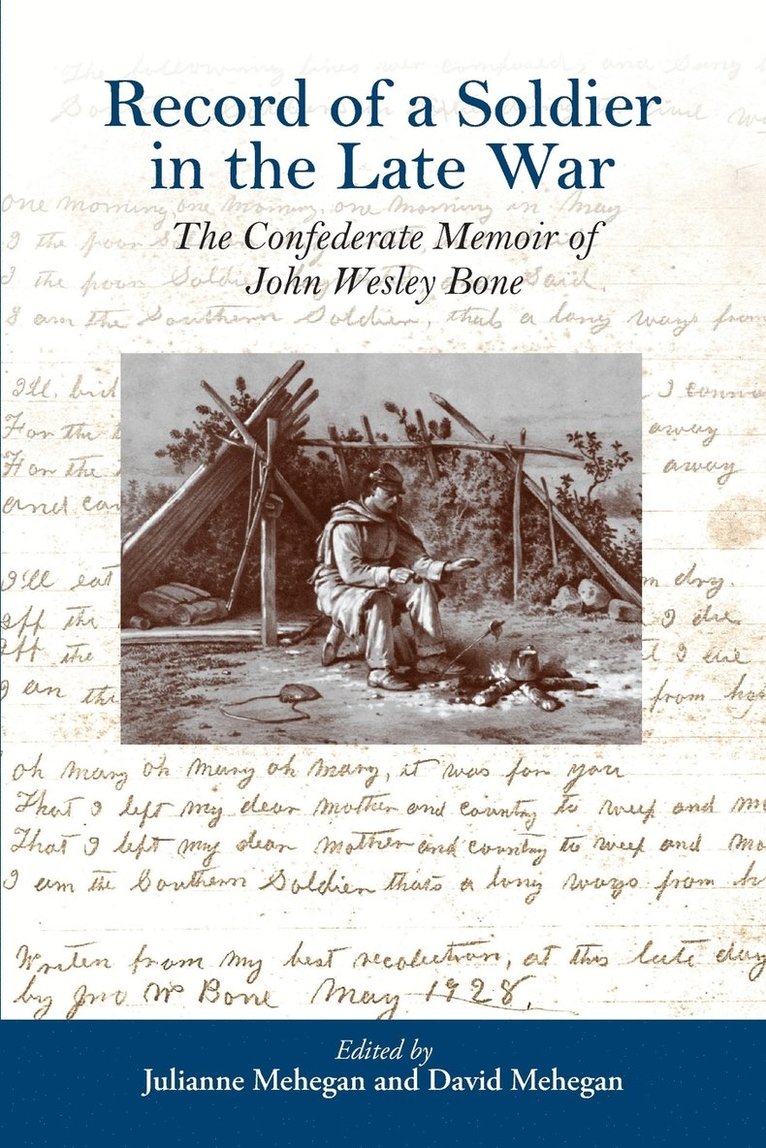 The following lines were composed, and Sung
Record of a Soldier
in the Late War
one morning, one morning, one morning in May
The Confederate Memoir of
I the poor
John Wesley Bone
I the poor Said.
I am the Southern Soldier, thats a long ways from
I'll I
For the away
For the away
and
I'll eat dry.
off the I die
off the I die
I am the from
oh mary oh mary oh mary, it was for you
That I left my dear mother and country to weep and
That I left my dear mother and country to weep and
I am the Southern Soldier thats a long ways from
Writen from my best recolection, at this late day
by Jno W Bone May 1928.
Edited by
Julianne Mehegan and David Mehegan